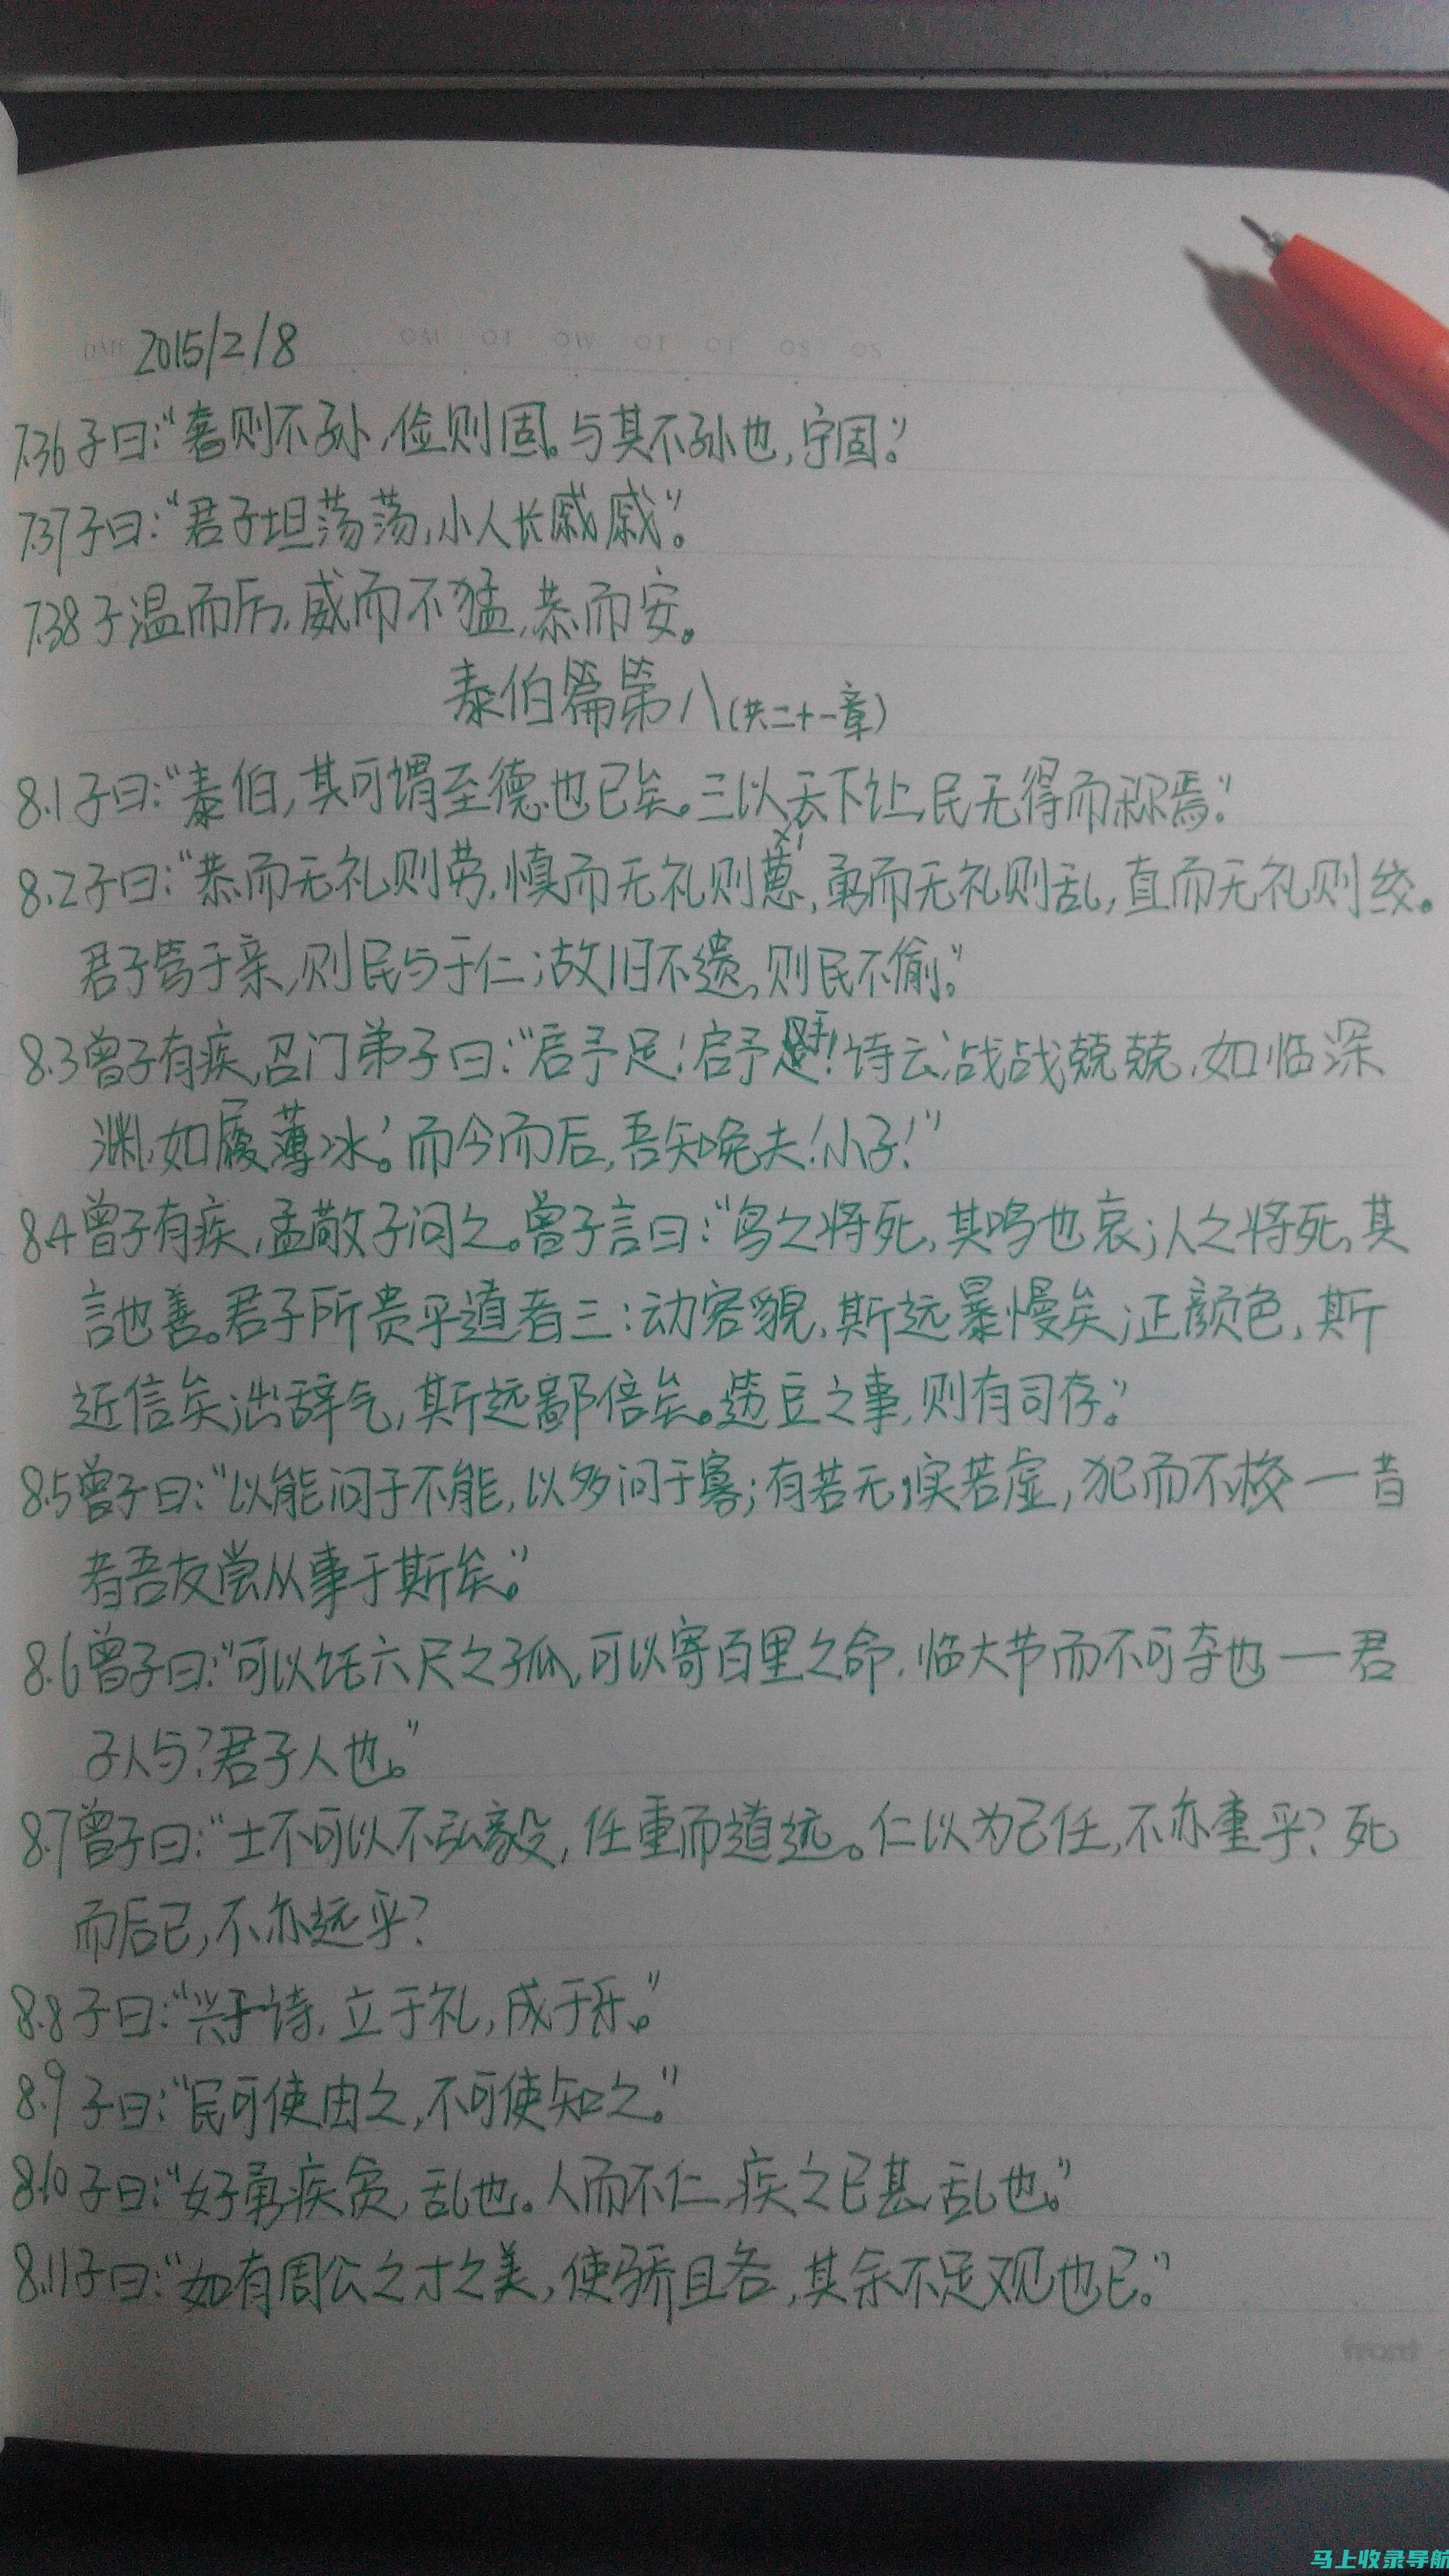 DATE 2015/2/8
7.36 子曰：“奢则不孙，俭则固。与其不孙也，宁固。”
7.37 子曰：“君子坦荡荡，小人长戚戚”。
7.38 子温而厉，威而不猛，恭而安。
泰伯篇第八（共二十一章）
8.1 子曰：“泰伯，其可谓至德也已矣。三以天下让，民无得而称焉。”
xǐ
8.2 子曰：“恭而无礼则劳，慎而无礼则葸，勇而无礼则乱，直而无礼则绞。
君子笃于亲，则民与于仁；故旧不遗，则民不偷。”
8.3 曾子有疾，召门弟子曰：“启予足！启予手！诗云‘战战兢兢，如临深
渊，如履薄冰。’而今而后，吾知晚夫！小子！”
8.4 曾子有疾，孟敬子问之。曾子言曰：“鸟之将死，其鸣也哀；人之将死，其
言也善。君子所贵乎道者三：动容貌，斯远暴慢矣；正颜色，斯
近信矣；出辞气，斯远鄙倍矣。笾豆之事，则有司存。”
8.5 曾子曰：“以能问于不能，以多问于寡；有若无，实若虚，犯而不校一昔
者吾友尝从事于斯矣。”
8.6 曾子曰：“可以托六尺之孤，可以寄百里之命，临大节而不可夺也一君
子人与？君子人也。”
8.7 曾子曰：“士不可以不弘毅，任重而道远。仁以为己任，不亦重乎？死
而后已，不亦远乎？
8.8 子曰：“兴于诗，立于礼，成于乐。”
8.9 子曰：“民可使由之，不可使知之。”
8.10 子曰：“好勇疾贫，乱也。人而不仁，疾之已甚，乱也。”
8.11 子曰：“如有周公之才之美，使骄且吝，其余不足观也已。”
front
马上收录导航